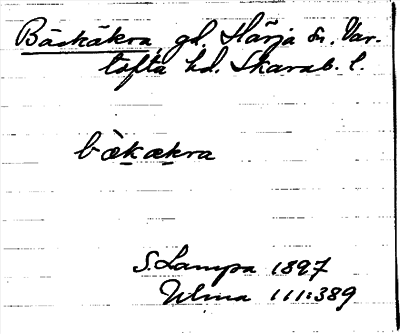 Bäckåkra, gd. Härja sn. Var-
tofta hd. Skarab. l.
bæ̀kækra
S. Lampa 1897
Ulma 111:389